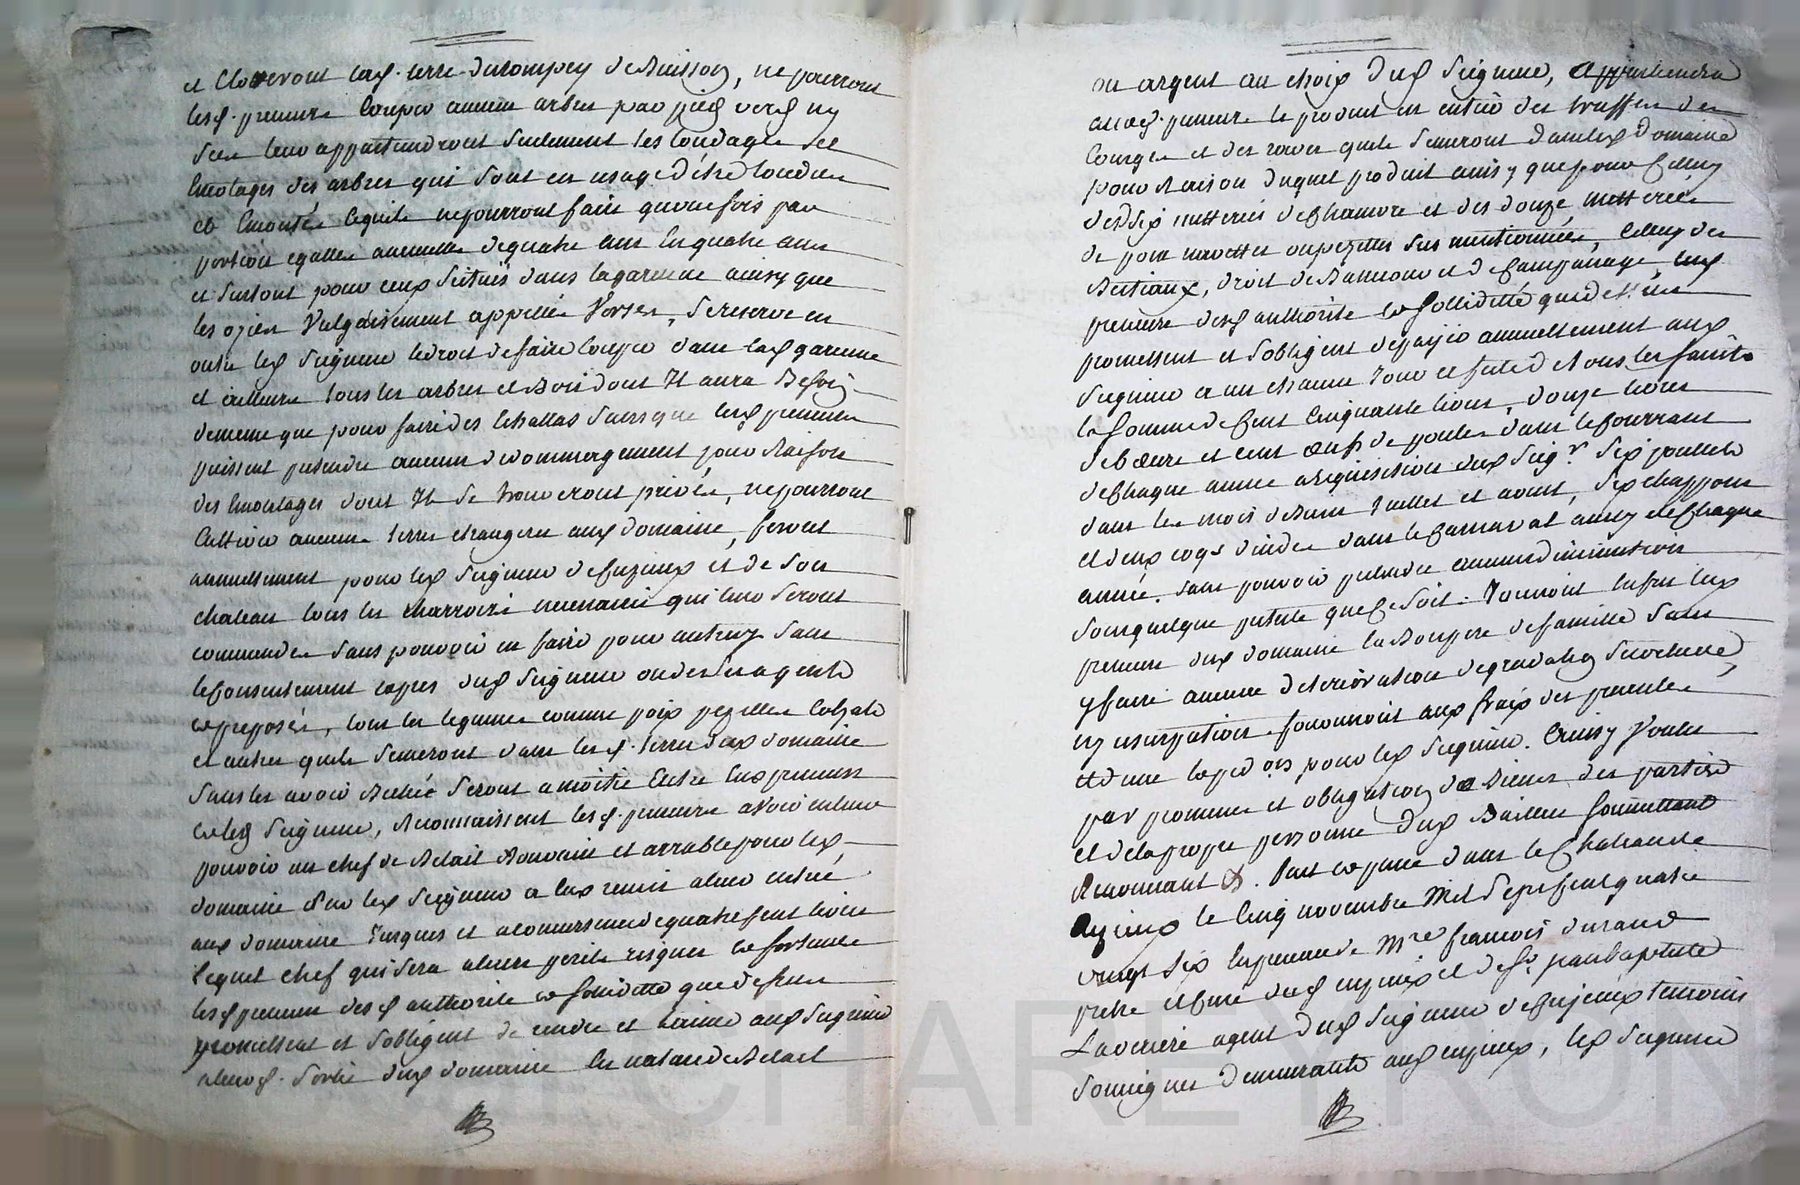 et Cloreront lad. terre du rompey de Buisson, ne pourront
lesd. preneurs Couper aucun arbre par pied verd ny
Secs leur appartiendront Seulement les Coudages
Emotages des arbres qui Sont en usage d'être Coudés
et Emontés lequels ne pourront faire qu'une fois par
portion egalle annuelle de quatre ans en quatre ans
et Surtout pour ceux Situés dans la garenne ainsy que
les oziers Vulgairement appellés Vorzes, Se reserve en
outre led. Seigneur le droit de faire Couper dans lad. garenne
et ailleurs tous les arbres et Bois dont Il aura Besoin
de meme que pour faire des Echallas Sans que lesd. preneurs
puissent pretendre aucun dedommagement pour Raison
des Emontages dont Ils Se trouveront privés, ne pourront
Cultiver aucune terre etrangere aud. domaine, feront
annuellement pour led. Seigneur d'Enjeux et de Son
chateau tous les charrois necessaires qui leur Seront
commandés Sans pouvoir en faire pour autruy Sans
le Consentement exprès dud. Seigneur ou de Ses agents
et preposés, tous les legumes comme pois pezettes Colzats
et autres qu'ils Semeront dans les d. terres dud. domaine
Sans les avoir Seront a moitié Entre lesd. preneurs
et led. Seigneur, Reconnaissent lesd. preneurs avoir en leur
pouvoir un chef de Betail Bouvain et arrable pour led.
domaine Par led. Seigneur a Eux remis a leur entrée
aud. domaine Jusques et a concurrence de quatre Cent livres
lequel chef qui Sera a leurs perils risques et fortunes
lesd. preneurs desd. authorité et Solidité que dessus
promettent et S'obligent de rendre et laisser aud. Seigneur
a leur d. Sortie dud. domaine En nature de Betail
ou argent au choix dud. Seigneur, Appartiendra
auxd. preneurs le produit en entier des truffes des
Courges et des raves qu'ils Semeront dans led. Domaine
pour Raison duquel produit ainsy que pour Celluy
des Six metterées de Chanvre et des douze metterées
de pois ou pezettes Sus mentionnées, Celluy des
Bestiaux, droit de Banneau et de Campanage, lesd.
preneurs desd. authorité et Sollidité que dessus
promettent et S'obligent de payer annuellement aud.
Seigneur a un chacun Jour et fete de tous les Saints
la Somme de Cent Cinquante livres, douze livres
de beure et cent œufs de poules dans le Courrant
de Chaque année a requisition dud. Seigr. Six poullets
dans les mois de Juin Juillet et aout, Six chappons
et deux coqs d'inde dans le Carnaval aussy de Chaque
année. Sans pouvoir pretendre aucune diminution
Sous quelque pretexte que ce Soit. Jouiront Enfin lesd.
preneurs dud. domaine en Bon pere de famille Sans
y faire aucune deterioration degradation Servitude
ny usurpation. fourniront aux frais des presentes
et d'une expedon pour led. Seigneur. Ainsy Voulu
par promesse et obligation de Biens des parties
et de la propre personne dud. Bailleur Soumettant
Renonceant &. Fait et passé dans le Chateau de
Enjeux le Cinq novembre Mil Sept Cent quatre
vingt Six En presence de Mre francois durand
pretre et Curé dud. enjeux et de Sr. jean baptiste
Laverrière agent dud. Seigneur d'Enjeux temoins
Soussignés demeurants aud. enjeux, led. Seigneur
CHAREYRON